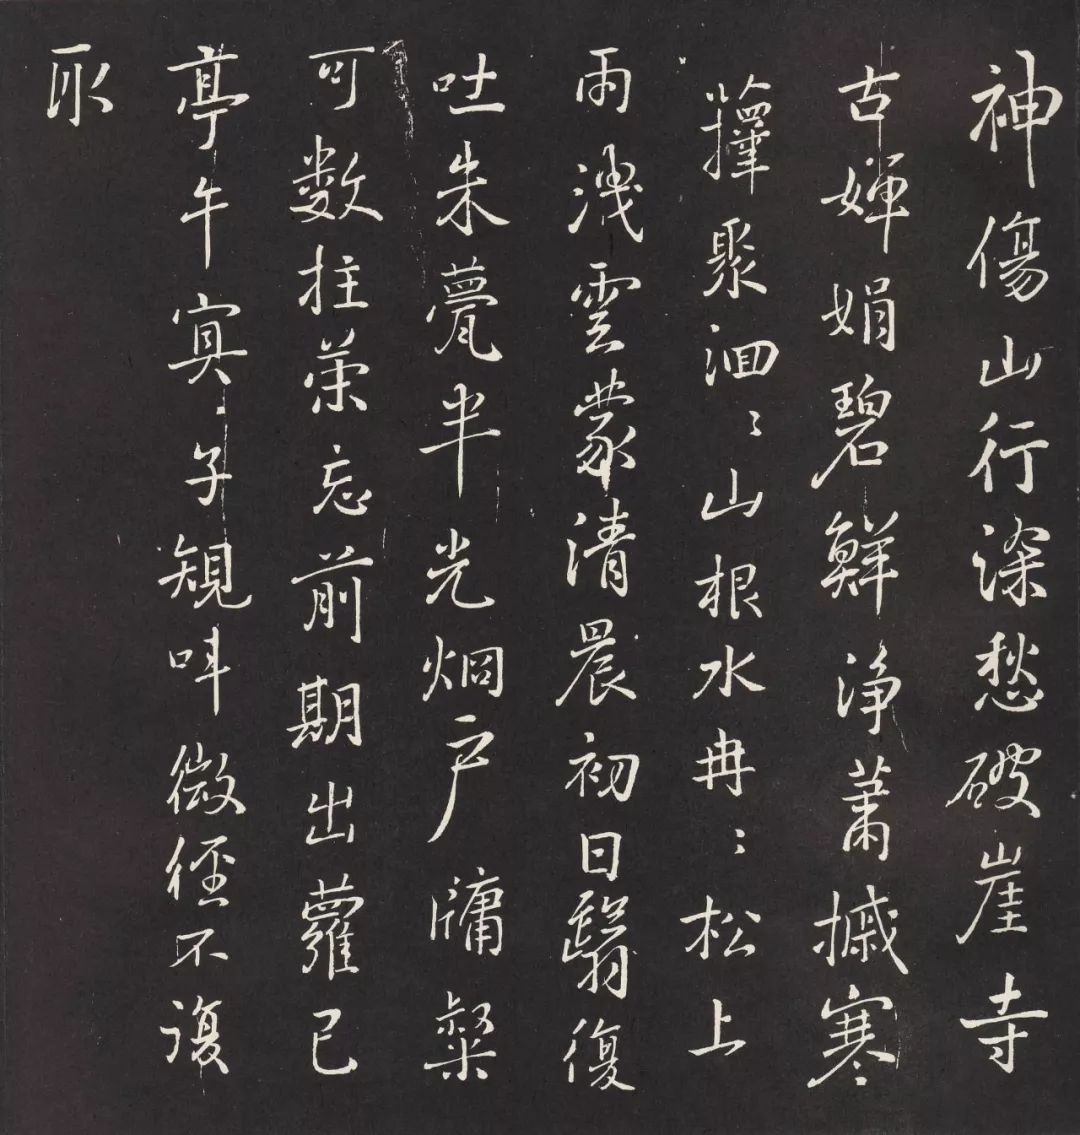 神傷山行深愁破崖寺
古嬋娟碧鮮淨蕭摵寒
籜聚洄〻山根水冉〻松上
雨洩雲蒙清晨初日翳復
吐朱甍半光烱戶牖粲
可數拄策忘前期出蘿已
亭午冥〻子規叫微徑不復
取